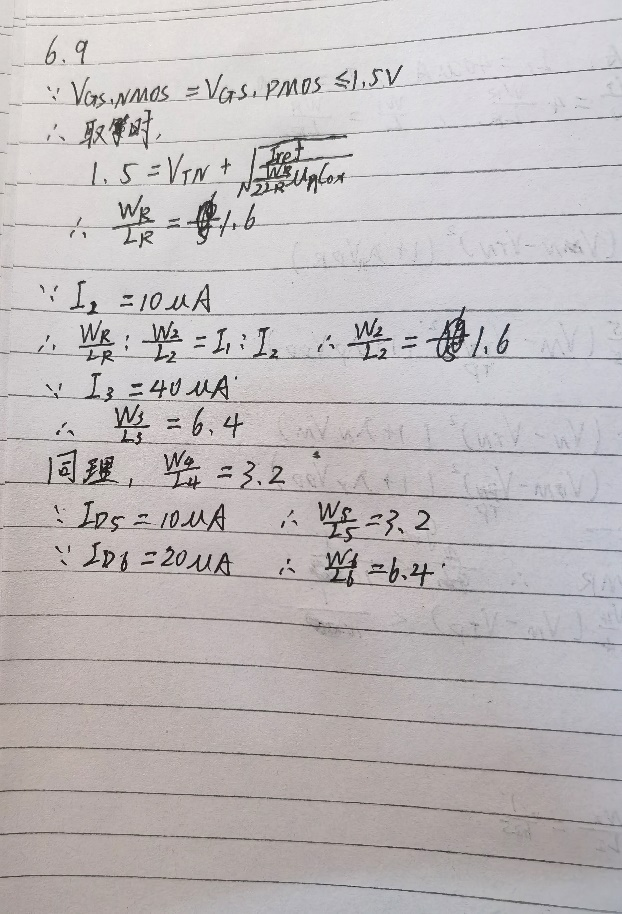 6.9
∵ VGS,NMOS = VGS,PMOS ≤1.5V
∴ 取等时,
1.5 = VTN + √(Iref / (WR/2LR μnCox))
∴ WR/LR = 1.6
∵ I2 = 10μA
∴ WR/LR : W2/L2 = I1 : I2 ∴ W2/L2 = 1.6
∵ I3 = 40μA
∴ W3/L3 = 6.4
同理, W4/L4 = 3.2
∵ ID5 = 10μA ∴ W5/L5 = 3.2
∵ ID6 = 20μA ∴ W6/L6 = 6.4